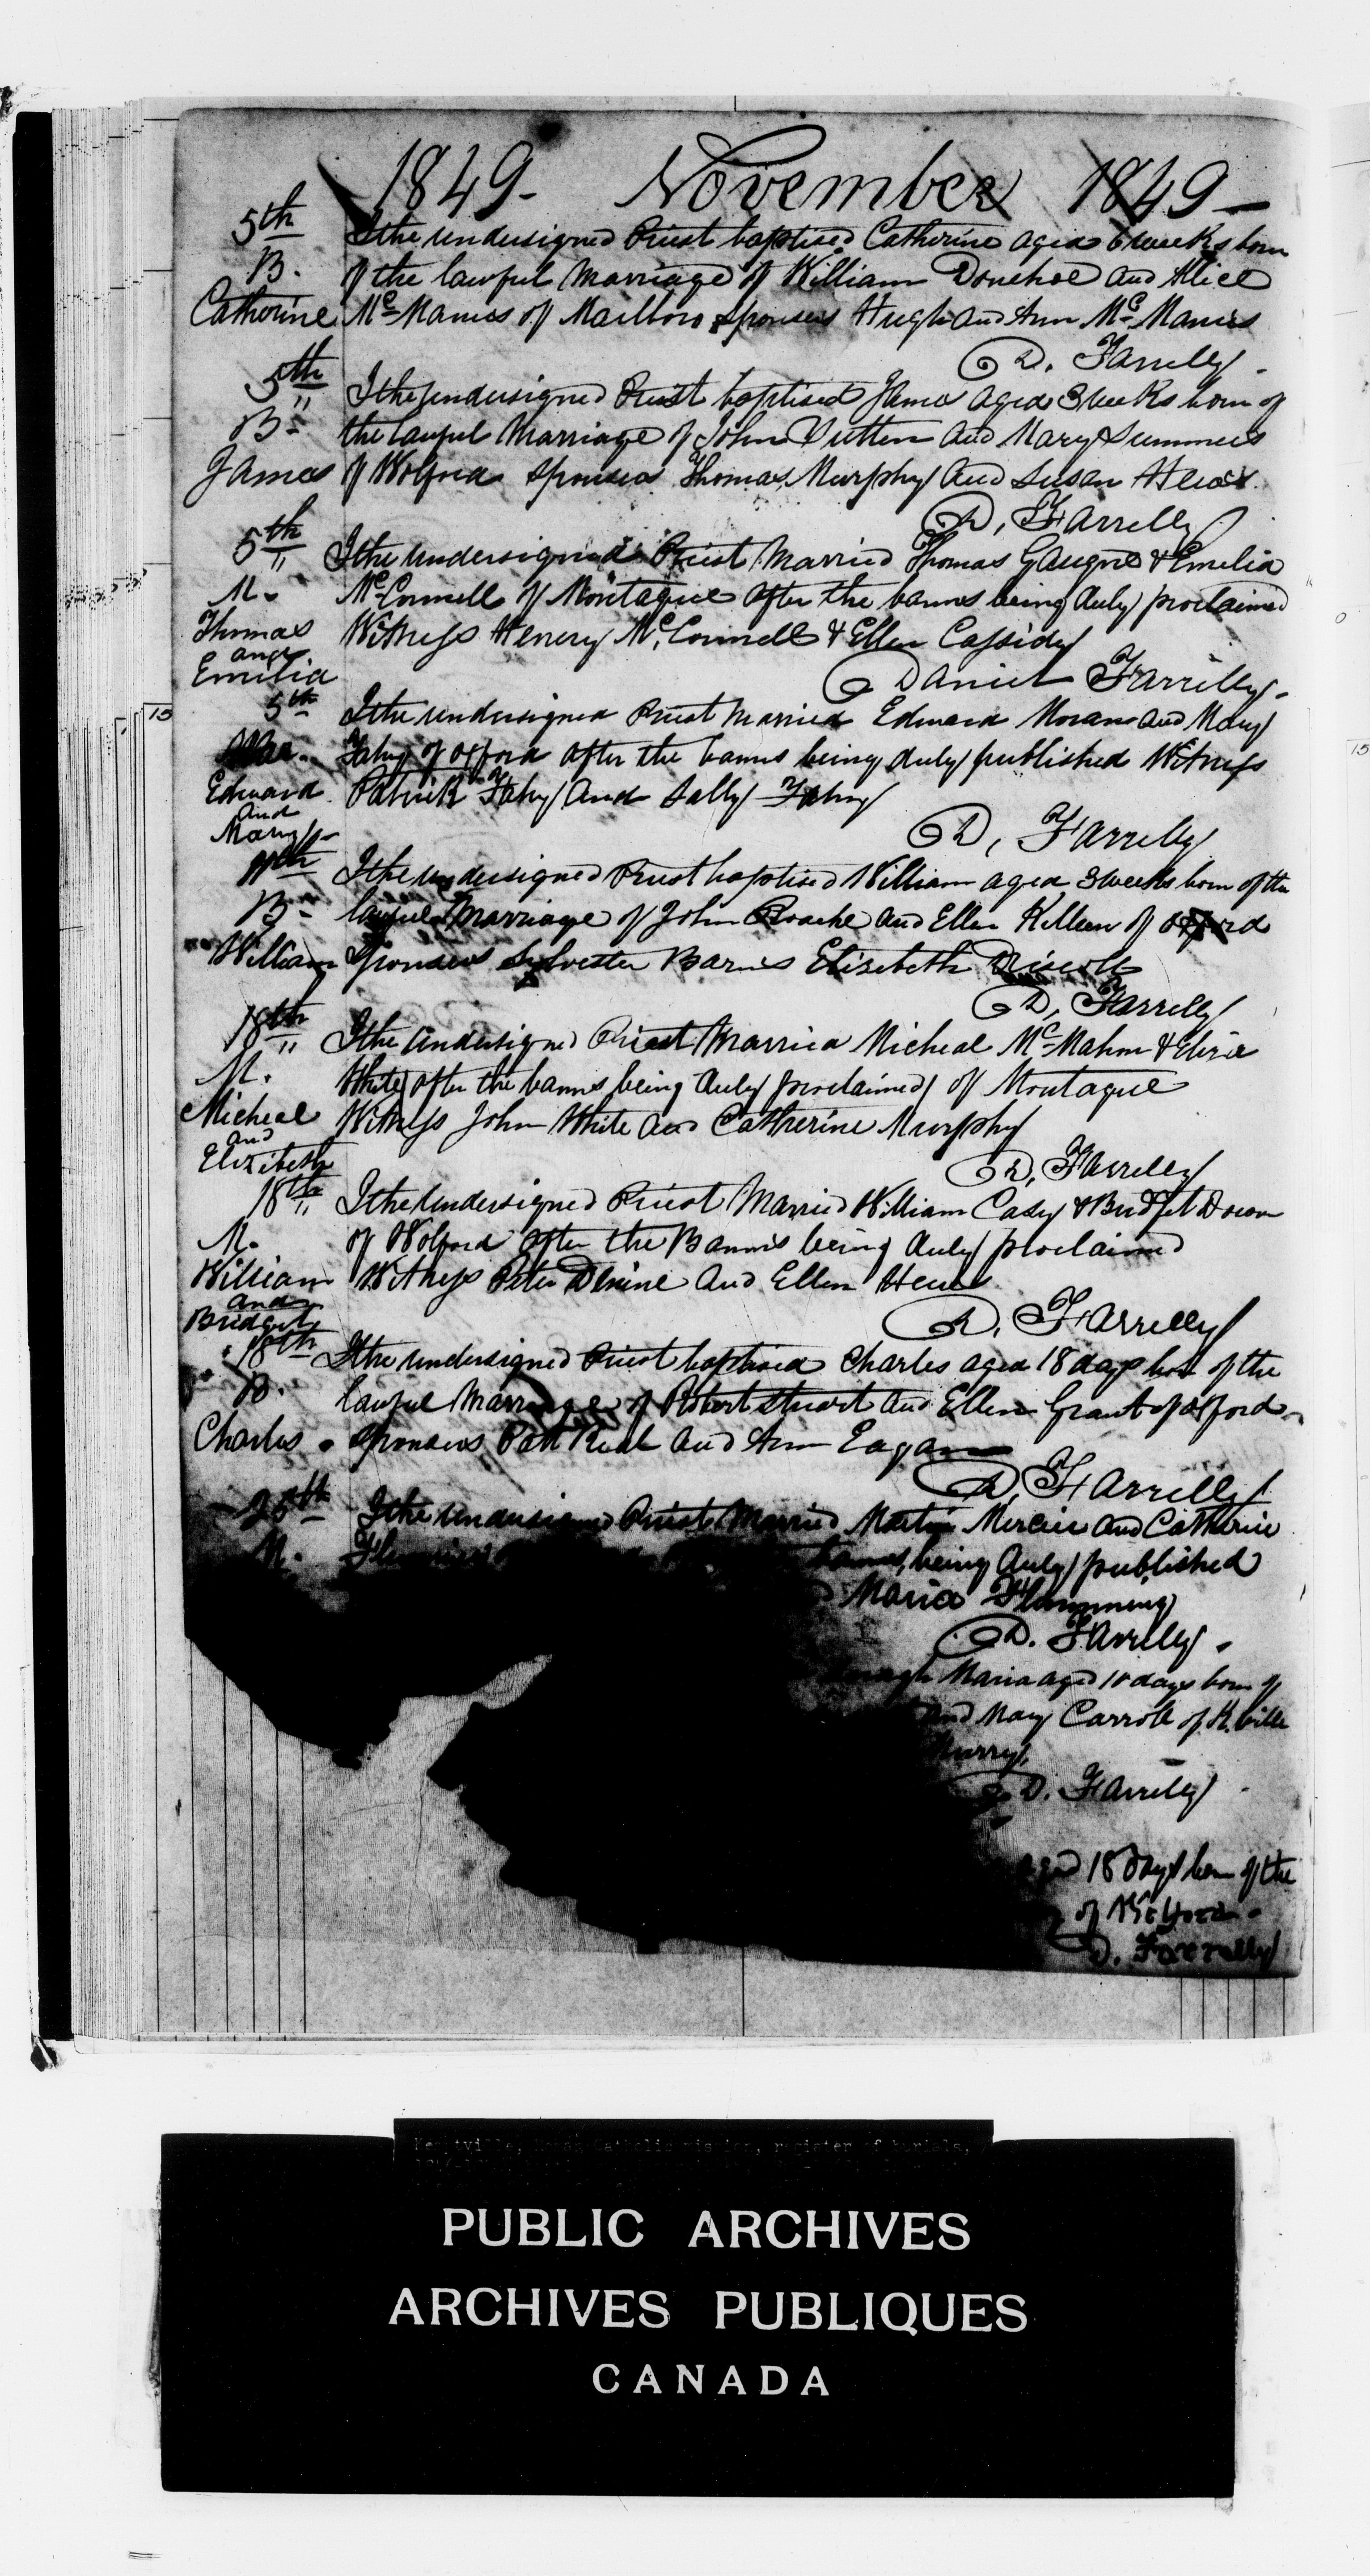 1849- November 1849-
5th I the undersigned Priest baptised Catherine aged 6 weeks born
B. of the lawful Marriage of William Donehoe and Alice
Catherine McManus of Marlboro Sponsers Hugh and Ann McManus
D. Farrelly
5th I the undersigned Priest baptised James aged 3 weeks born of
B- the lawful Marriage of John Dutten and Mary Summers
James of Wolford Sponsers Thomas Murphy and Susan
D, Farrelly
5th I the undersigned Priest Married Thomas & Emelia
M. McConnell of Montague after the banns being duly proclaimed
Thomas Witness Henery McConnell & Ellen Cassidy
and
Emilia
Daniel Farrelly-
5th I the undersigned Priest Married Edward Moran and Mary
Mar. Fahy of Oxford after the banns being duly published Witness
Edward Patrick Fahy and Sally Fahy
and
Mary
D, Farrelly
11th I the undersigned Priest baptised William aged 3 weeks born of the
B- lawful Marriage of John Roache and Ellen Killeen of Oxford
William Sponsers Sylvester Barnes Elizebeth Driscoll
D, Farrelly
18th I the undersigned Priest Married Micheal McMahon & Eliza
M. White after the banns being duly proclaimed of Montague
Micheal Witness John White and Catherine Murphy
and
Elizibeth
D, Farrelly
18th I the undersigned Priest Married William Casey & Bridget
M. of Wolford after the Banns being duly proclaimed
William Witness Peter and Ellen
and
Bridget
D. Farrelly
18th I the undersigned Priest baptised Charles aged 18 days born of the
B. lawful Marriage of Robert Stuart and Ellen Grant of Oxford
Charles Sponsers Patt and Ann Eagan
D, Farrelly
25th I the undersigned Priest Married Martin Mercier and Catherine
M. banns being duly published
Maria Flamming
D. Farrelly
Maria aged 10 days born of
and Mary Carroll of K. ville
Murry
D. Farrelly
aged 18 days born of the
of
D. Farrelly
15
15
Kemptville, Roman Catholic mission, register of burials,
PUBLIC ARCHIVES
ARCHIVES PUBLIQUES
CANADA